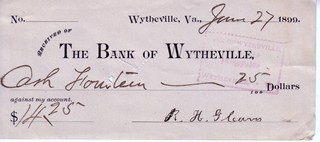 No. Wytheville, Va., June 27 1899.
RECEIVED OF
THE BANK OF WYTHEVILLE,
Cash Fourteen 25/100 Dollars
against my account.
$14.25 R. H. Gleaves